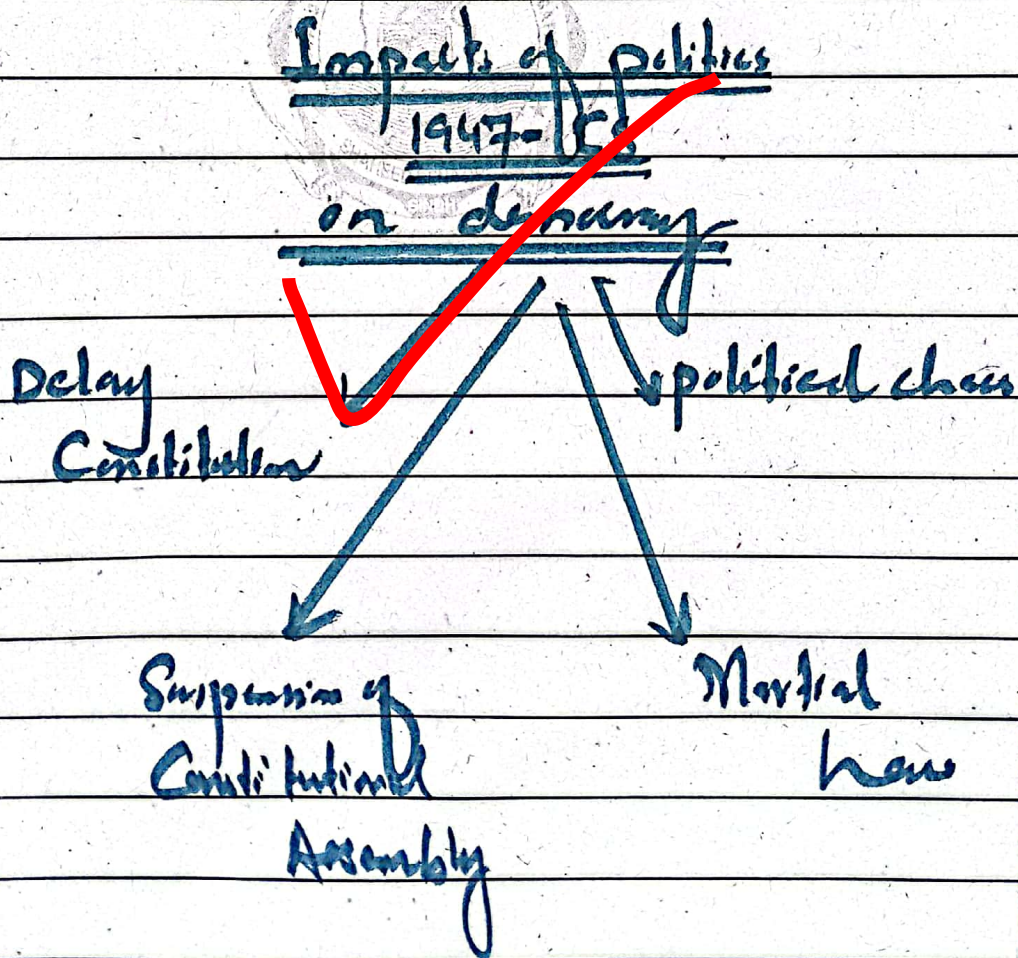 Impacts of politics
1947-58
on democracy
Delay
Constitution
political chaos
Suspension of
Constitutional
Assembly
Martial
Law